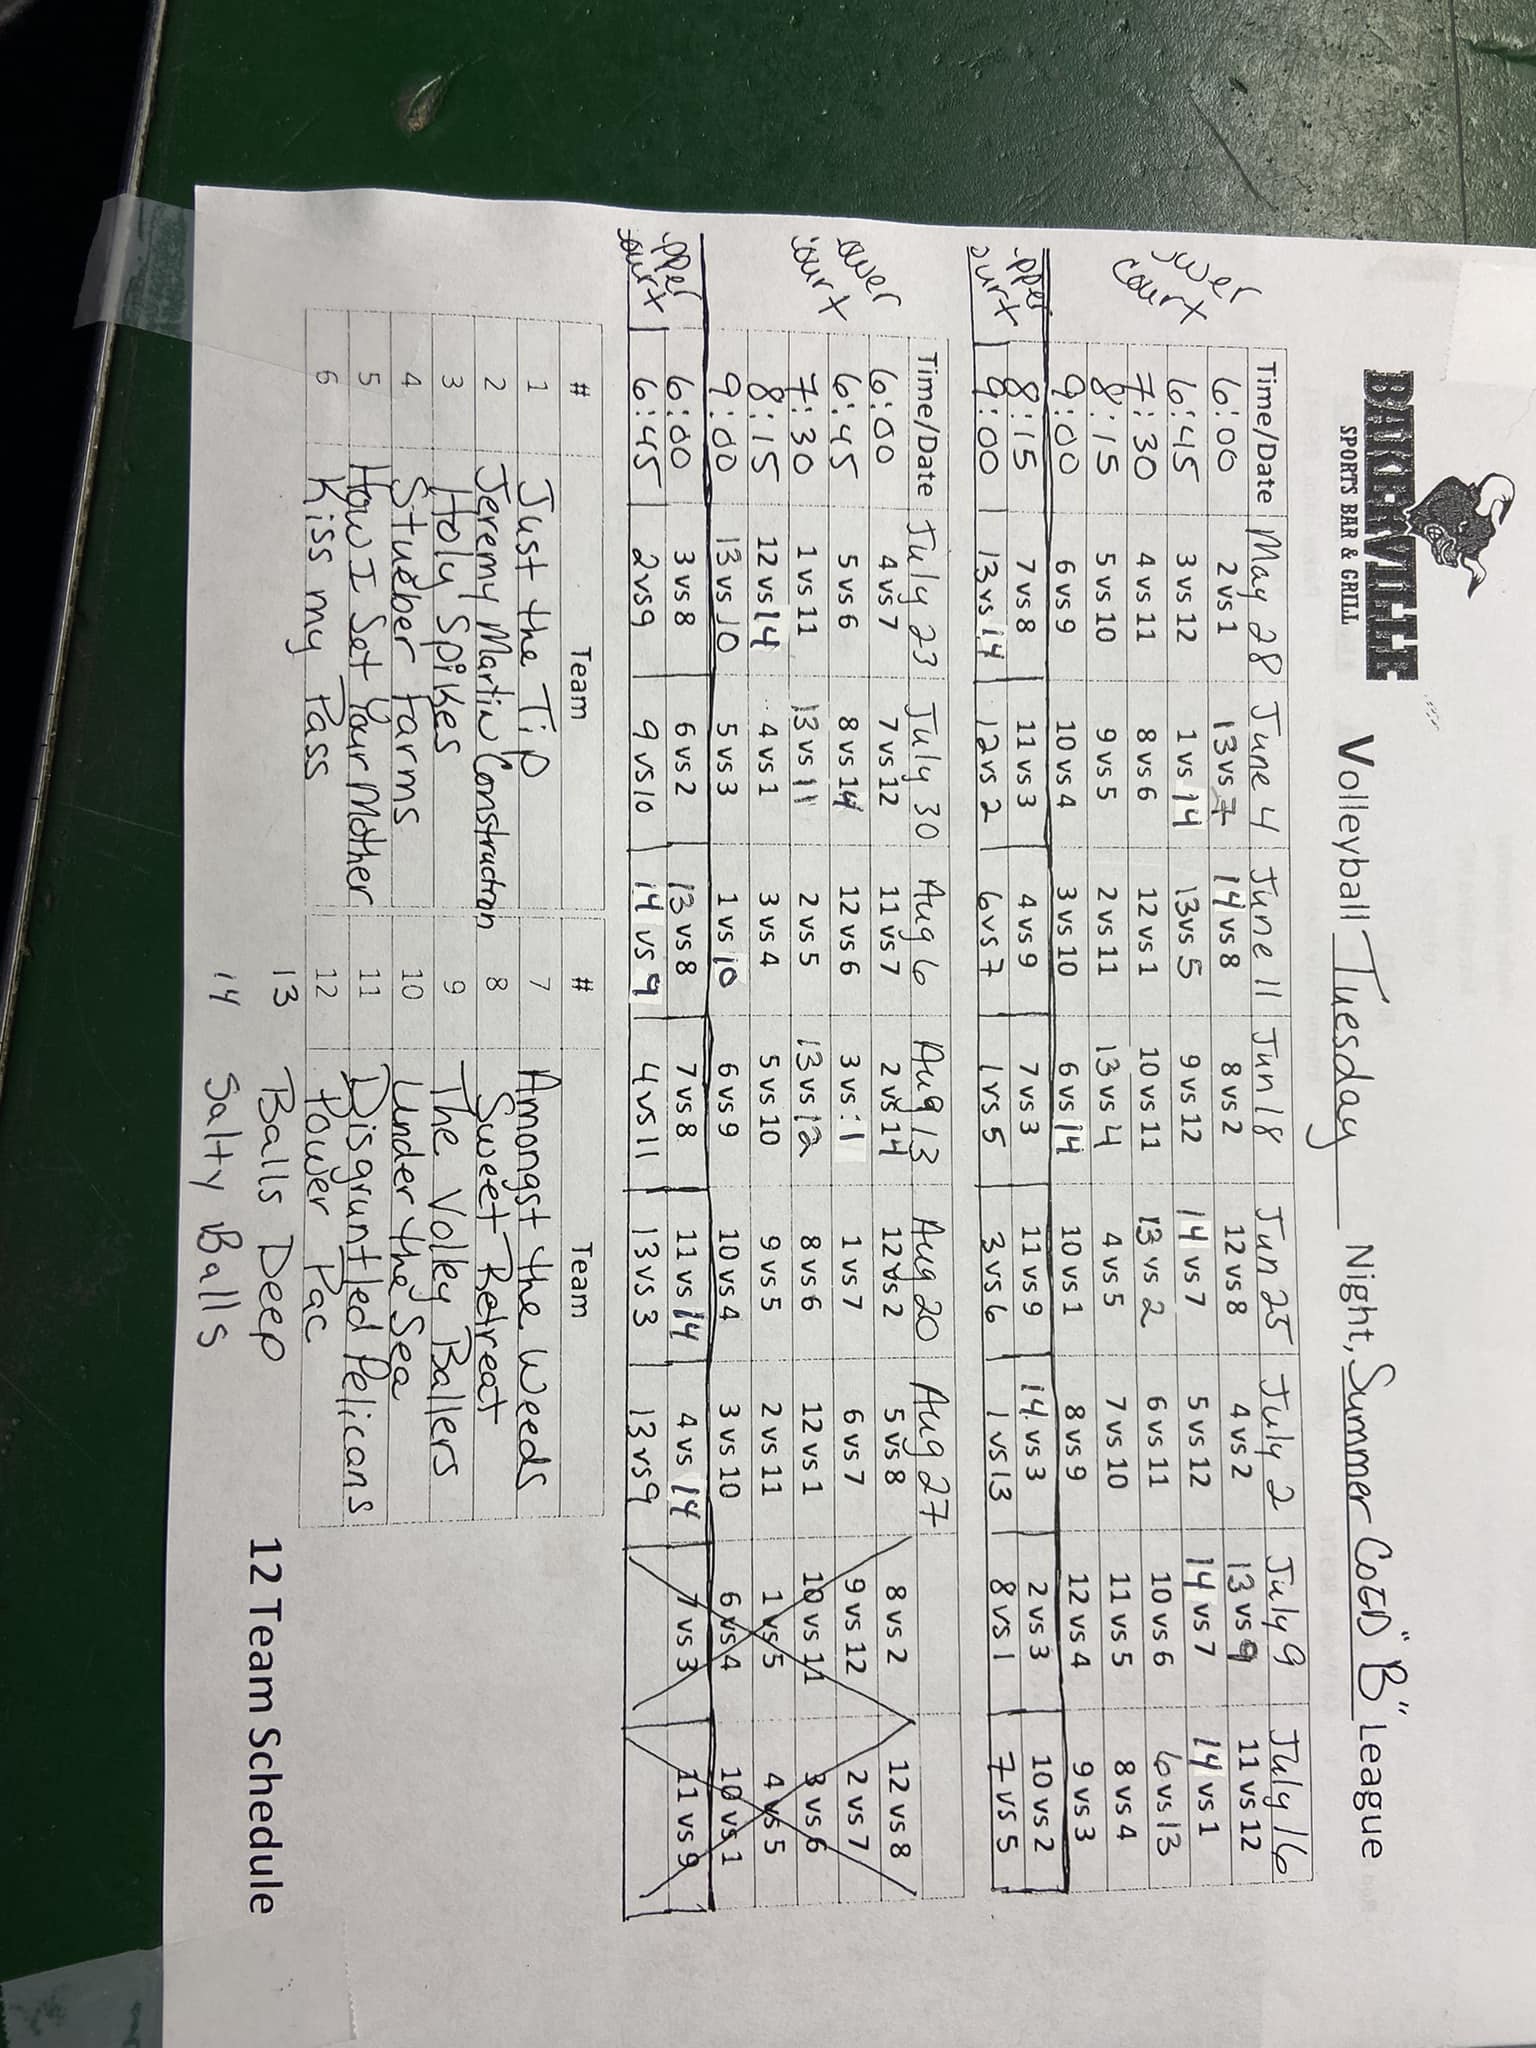 BACKERVILLE
SPORTS BAR & GRILL
Volleyball Tuesday Night, Summer CoED "B" League
Time/Date May 28 June 4 June 11 Jun 18 Jun 25 July 2 July 9 July 16
6:00 2 vs 1 13 vs 7 14 vs 8 8 vs 2 12 vs 8 4 vs 2 13 vs 9 11 vs 12
6:45 3 vs 12 1 vs 14 13 vs 5 9 vs 12 14 vs 7 5 vs 12 14 vs 7 14 vs 1
7:30 4 vs 11 8 vs 6 12 vs 1 10 vs 11 13 vs 2 6 vs 11 10 vs 6 6 vs 13
8:15 5 vs 10 9 vs 5 2 vs 11 13 vs 4 4 vs 5 7 vs 10 11 vs 5 8 vs 4
9:00 6 vs 9 10 vs 4 3 vs 10 6 vs 14 10 vs 1 8 vs 9 12 vs 4 9 vs 3
8:15 7 vs 8 11 vs 3 4 vs 9 7 vs 3 11 vs 9 14 vs 3 2 vs 3 10 vs 2
9:00 13 vs 14 12 vs 2 6 vs 7 1 vs 5 3 vs 6 1 vs 13 8 vs 1 7 vs 5
wer
court
pper
ourt
Time/Date July 23 July 30 Aug 6 Aug 13 Aug 20 Aug 27
6:00 4 vs 7 7 vs 12 11 vs 7 2 vs 14 12 vs 2 5 vs 8 8 vs 2 12 vs 8
6:45 5 vs 6 8 vs 14 12 vs 6 3 vs 11 1 vs 7 6 vs 7 9 vs 12 2 vs 7
7:30 1 vs 11 13 vs 11 2 vs 5 13 vs 12 8 vs 6 12 vs 1 10 vs 11 3 vs 6
8:15 12 vs 14 4 vs 1 3 vs 4 5 vs 10 9 vs 5 2 vs 11 1 vs 5 4 vs 5
9:00 13 vs 10 5 vs 3 1 vs 10 6 vs 9 10 vs 4 3 vs 10 6 vs 4 10 vs 1
6:00 3 vs 8 6 vs 2 13 vs 8 7 vs 8 11 vs 14 4 vs 14 7 vs 3 11 vs 9
6:45 2 vs 9 9 vs 10 14 vs 9 4 vs 11 13 vs 3 13 vs 9
ower
ourt
pper
ourt
# Team # Team
1 Just the Tip 7 Amongst the Weeds
2 Jeremy Martin Construction 8 Sweet Retreat
3 Holy Spikes 9 The Volley Ballers
4 Stueber Farms 10 Under the Sea
5 How I Set Your Mother 11 Disgruntled Pelicans
6 Kiss my Pass 12 Power Pac
13 Balls Deep
14 Salty Balls
12 Team Schedule